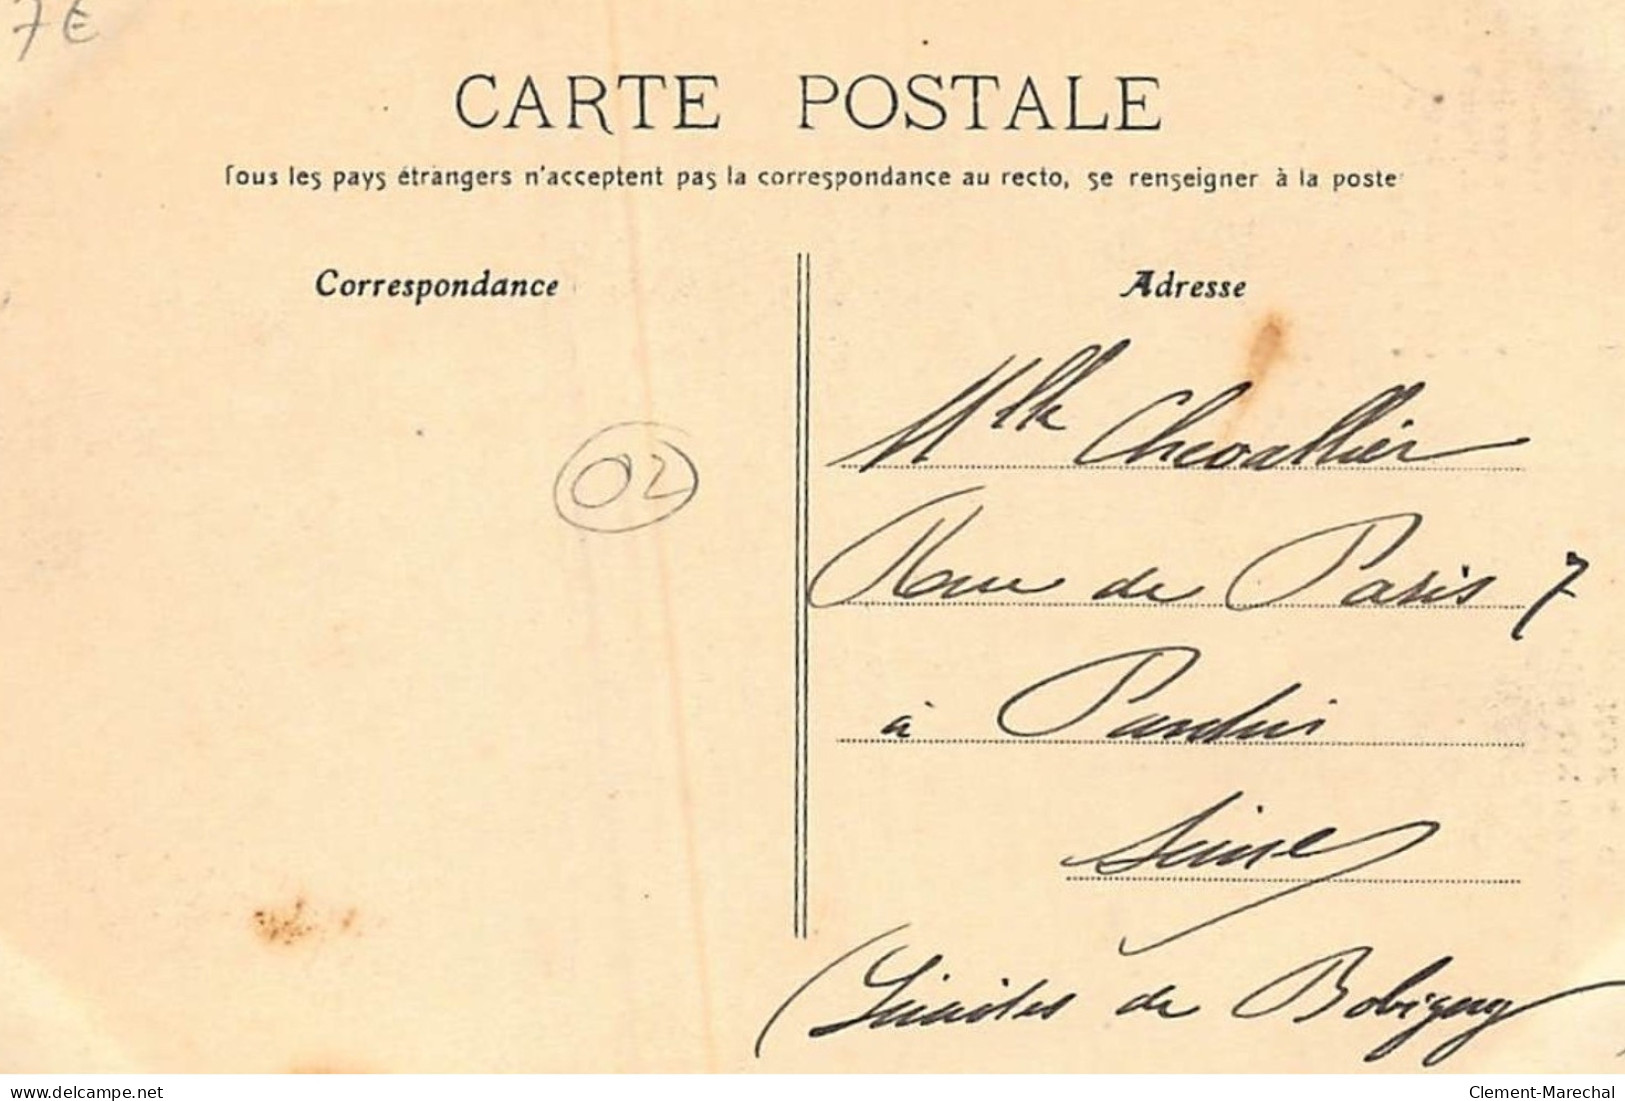 7 E
CARTE POSTALE
Tous les pays étrangers n'acceptent pas la correspondance au recto, se renseigner à la poste
Correspondance
Adresse
Mlle Chevallier
02
Rue de Paris 7
à Pantin
Seine
(Limites de Bobigny)
delcampe.net
Clement-Marechal